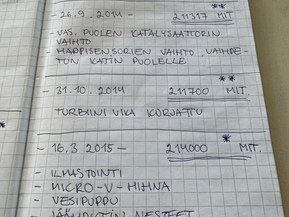 - 26.9.2014 - 211317 MIT **
- VAS. PUOLEN KATALYSAATTORIN
VAIHTO
- HAPPISENSORIEN VAIHTO, VAIHDE-
TUN KATIN PUOLELLE
- 31.10.2014 211700 MIT. **
TURBIINI VIKA KORJATTU
- 16.3 2015 - 214000 MIT. *
- ILMASTOINTI
- MICRO-V-HIHNA
- VESIPUPPU
- JÄÄHDYTIN NESTEET